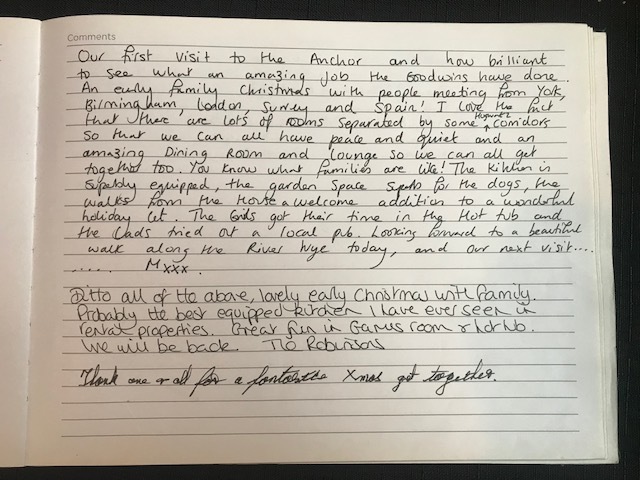 Comments
Our first visit to the Anchor and how brilliant
to see what an amazing job the Goodwins have done.
An early family Christmas with people meeting from York,
Birmingham, London, Surrey and Spain! I love the fact
that there are lots of rooms separated by some corridors
so that we can all have peace and quiet and an
amazing Dining Room and lounge so we can all get
together too. You know what families are like! The kitchen is
superbly equipped, the garden space superb for the dogs, the
walks from the House a welcome addition to a wonderful
holiday let. The Girls got their time in the Hot tub and
the Lads tried out a local pub. Looking forward to a beautiful
walk along the River Wye today, and our next visit....
..... Mxxx.
Ditto all of the above, lovely early Christmas with family.
Probably the best equipped kitchen I have ever seen in
rental properties. Great fun in Games room & hot tub.
We will be back. The Robinsons
Thank one & all for a fantastic Xmas get together.